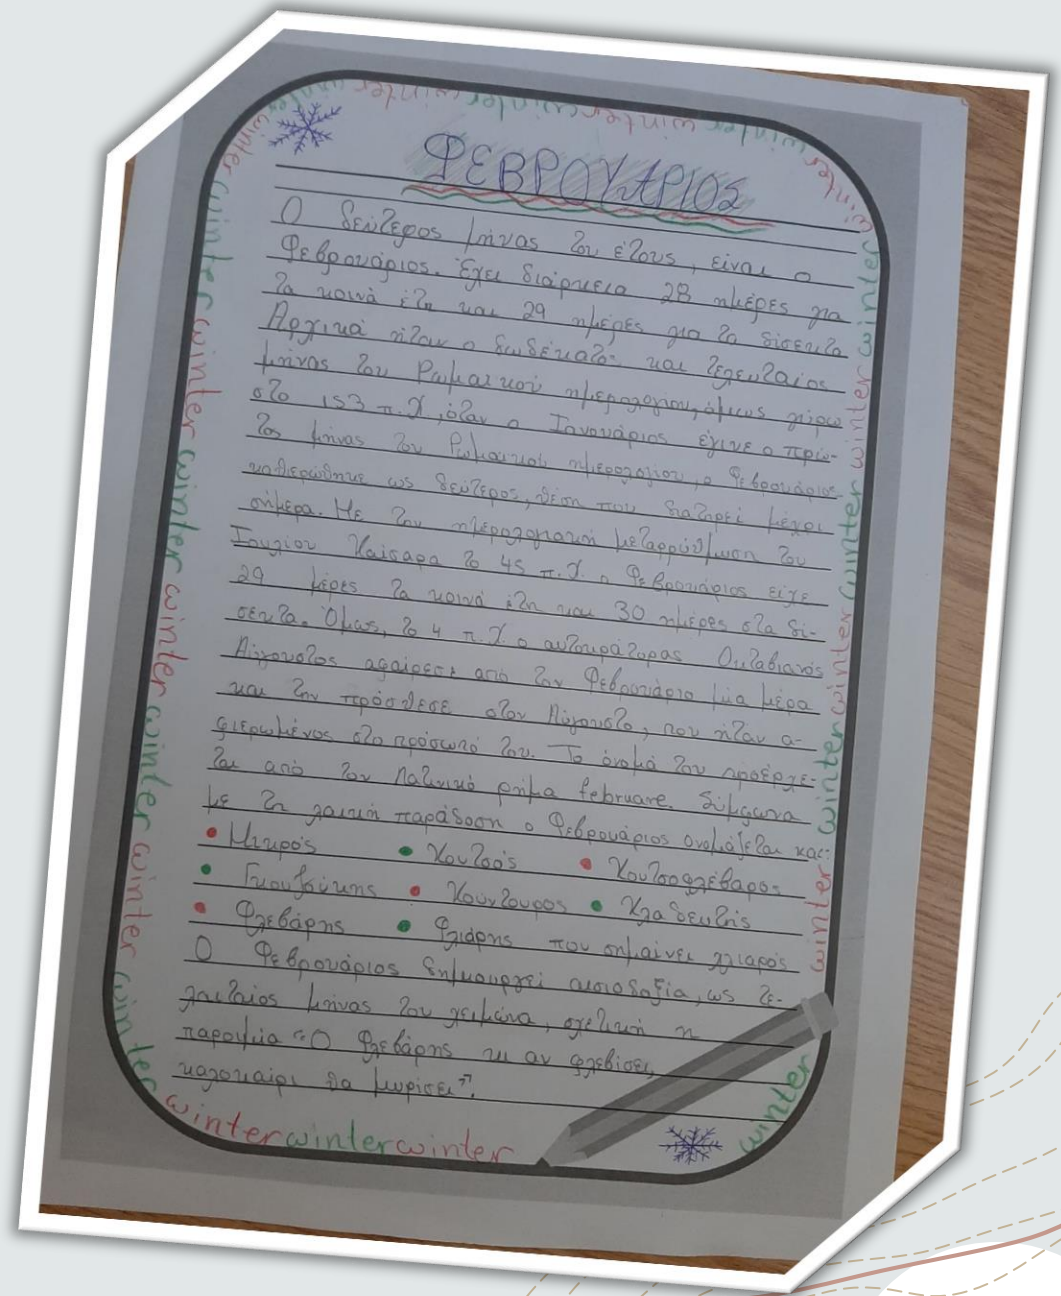 winter winter winter winter winter winter winter winter
ΦΕΒΡΟΥΑΡΙΟΣ
Ο δεύτερος μήνας του έτους, είναι ο
Φεβρουάριος. Έχει διάρκεια 28 ημέρες για
τα κοινά έτη και 29 ημέρες για τα δίσεκτα
Αρχικά ήταν ο δωδέκατος και τελευταίος
μήνας του Ρωμαϊκού ημερολογίου, όμως γύρω
στο 153 π.Χ, όταν ο Ιανουάριος έγινε ο πρώ-
τος μήνας του Ρωμαϊκού ημερολογίου, ο Φεβρουάριος
καθιερώθηκε ως δεύτερος, θέση που διατηρεί μέχρι
σήμερα. Με την ημερολογιακή μεταρρύθμιση του
Ιουλίου Καίσαρα το 45 π.Χ. ο Φεβρουάριος είχε
29 μέρες τα κοινά έτη και 30 ημέρες στα δί-
σεκτα. Όμως, το 4 π.Χ. ο αυτοκράτορας Οκταβιανός
Αύγουστος αφαίρεσε από τον Φεβρουάριο μία μέρα
και την πρόσθεσε στον Αύγουστο, που ήταν α-
φιερωμένος στο πρόσωπό του. Το όνομά του προέρχε-
ται από τον λατινικό ρήμα februare. Σύμφωνα
με τη λαϊκή παράδοση ο Φεβρουάριος ονομάζεται και:
• Μικρός • Κουτσός • Κουτσοφλέβαρος
• Γκουζούκης • Κούντουρος • Κλαδευτής
• Φλεβάρης • Φλιάρης που σημαίνει χλιαρός
Ο Φεβρουάριος δημιουργεί αισιοδοξία, ως τε-
λευταίος μήνας του χειμώνα, σχετική η
παροιμία "Ο Φλεβάρης κι αν φλεβίσει,
καλοκαίρι θα μυρίσει".
winter winter winter winter winter winter winter
winter winter winter winter winter winter winter
winter winter winter